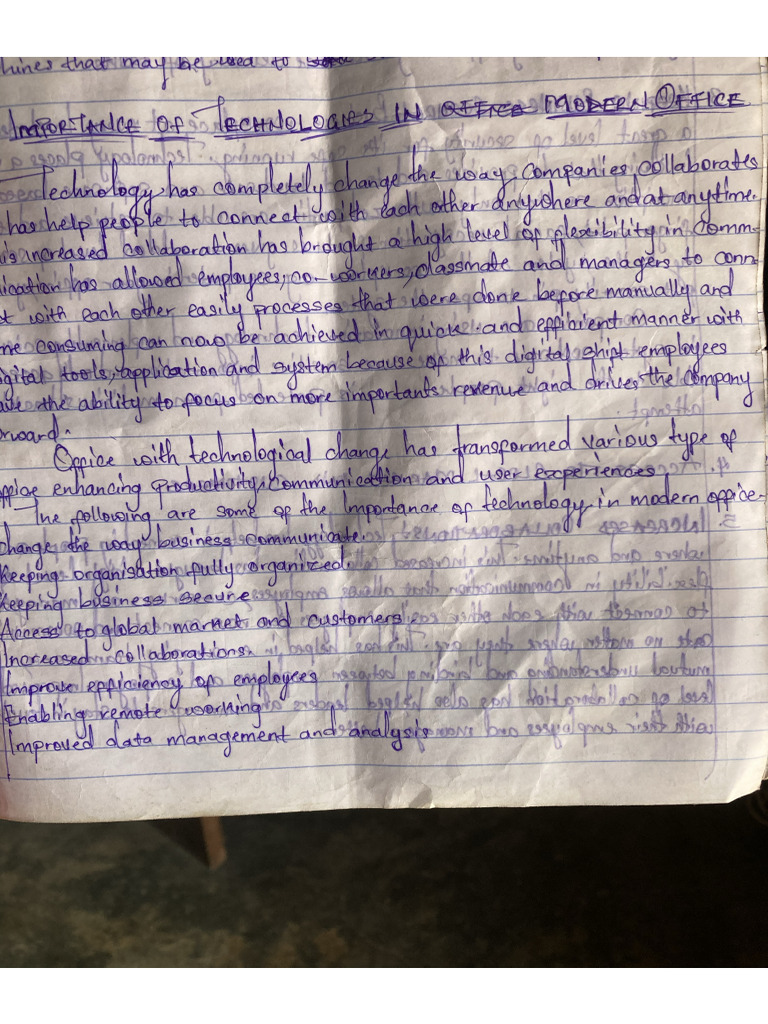 hines that may be used to
IMPORTANCE OF TECHNOLOGIES IN MODERN OFFICE
Technology has completely change the way Companies collaborates
has help people to connect with each other anywhere and at anytime.
is increased collaboration has brought a high level of flexibility in Comm-
ication has allowed employees, co-workers, classmate and managers to conn-
t with each other easily processes that were done before manually and
me consuming can now be achieved in quick and efficient manner with
igital tools, application and system because of this digital shift employees
ave the ability to focus on more importants revenue and drives the Company
rward.
Office with technological change has transformed various type of
ffice enhancing productivity, Communication and user experiences
The following are some of the Importance of technology in modern office-
change the way business communicate
Keeping organisation fully organized
Keeping business secure
Access to global market and customers
Increased collaborations
Improve efficiency of employees
Enabling remote working
Improved data management and analysis